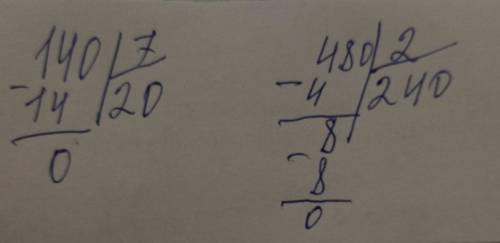 140 7
-14 20
0
480 2
-4 240
8
-8
0